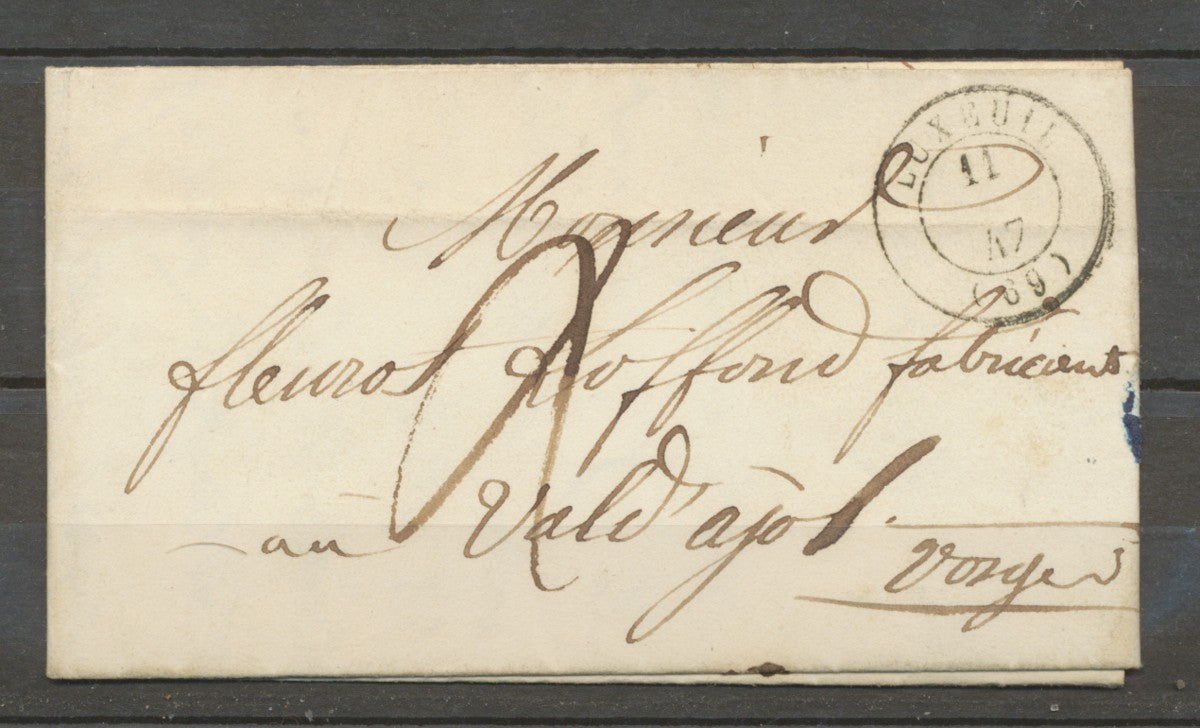 LUXEUIL
11
47
(69)
Monsieur
fleurot fabricant
au Val d'ajol.
Vosges